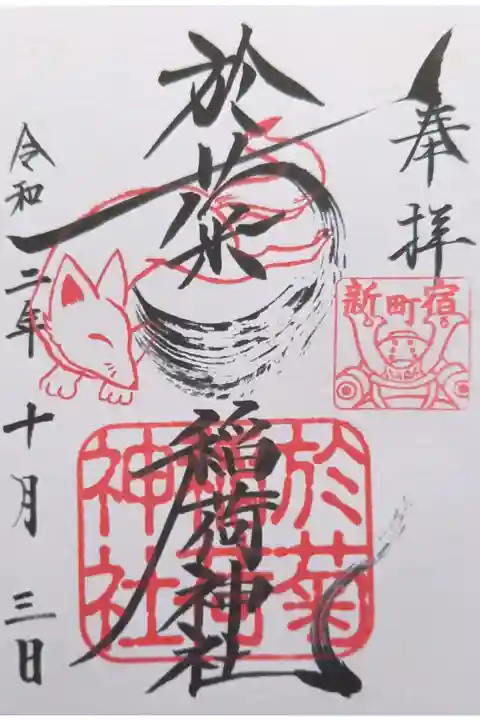 奉拝
新町宿
於菊
稲荷神社
於菊
稲荷
神社
令和二年十月三日